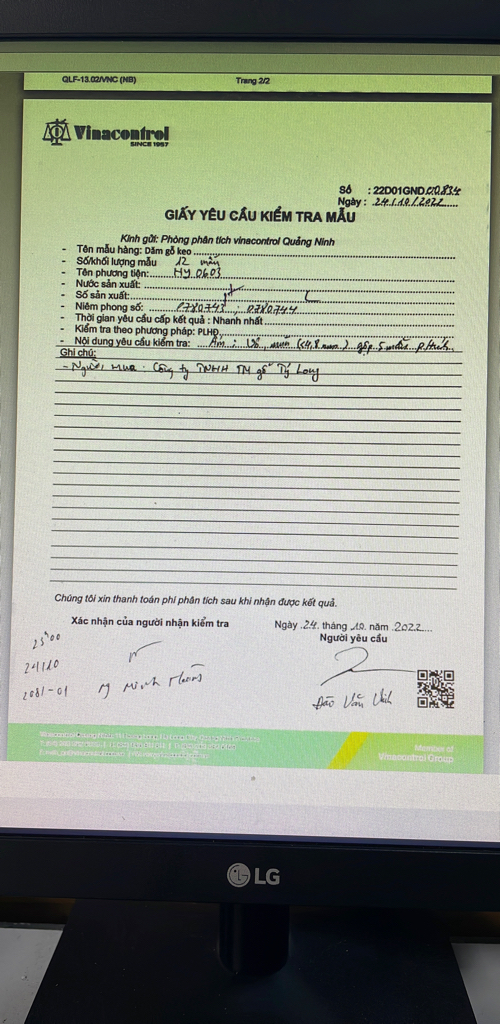 QLF-13.02/VNC (NB) Trang 2/2
Vinacontrol
SINCE 1957
Số : 22D01GND.00834
Ngày : 24/10/2022
GIẤY YÊU CẦU KIỂM TRA MẪU
Kính gửi: Phòng phân tích vinacontrol Quảng Ninh
- Tên mẫu hàng: Dăm gỗ keo
- Số/khối lượng mẫu 12 mẫu
- Tên phương tiện: HY 0603
- Nước sản xuất:
- Số sản xuất:
- Niêm phong số: 0780743 ; 0780744
- Thời gian yêu cầu cấp kết quả : Nhanh nhất
- Kiểm tra theo phương pháp: PLHĐ
- Nội dung yêu cầu kiểm tra: Ẩm ; (<4,8 mm) gộp 5 mẫu
Ghi chú:
- Người mua : Công ty TNHH TM gỗ Tý Long
Chúng tôi xin thanh toán phí phân tích sau khi nhận được kết quả.
Xác nhận của người nhận kiểm tra
Ngày 24 tháng 10 năm 2022
Người yêu cầu
24/10
2081-01
Đào Văn
Member of
Vinacontrol Group
LG